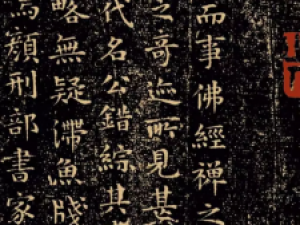 而事佛經禪之
之奇迹所見甚
代名公錯綜其
略無疑滯魚牋
為顏刑部書家